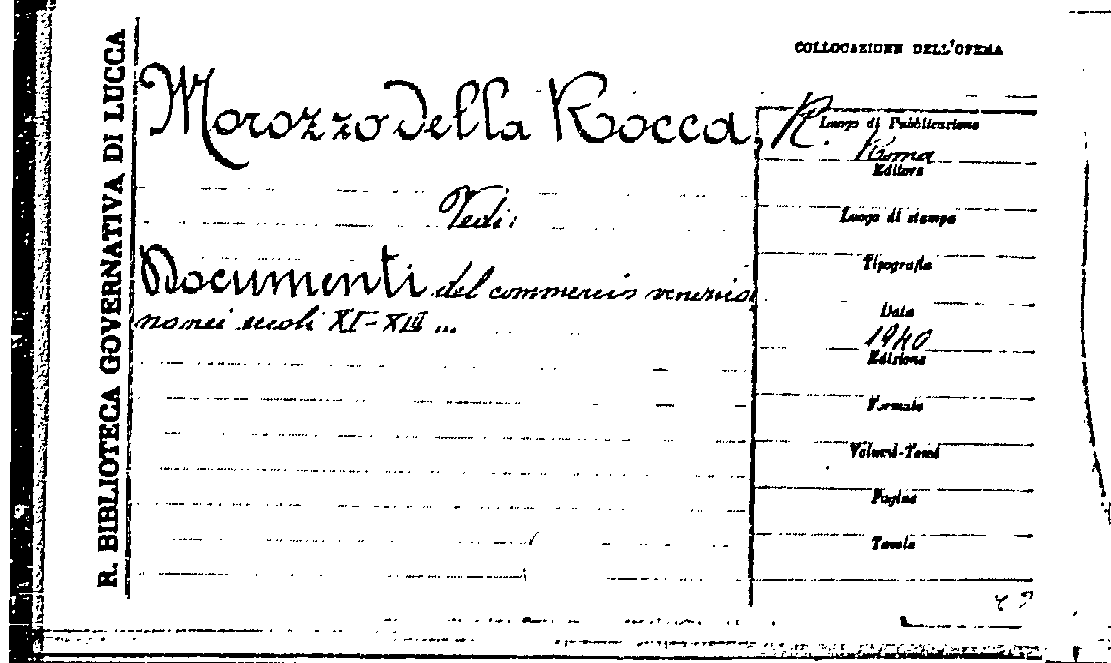 R. BIBLIOTECA GOVERNATIVA DI LUCCA
COLLOCAZIONE DELL'OPERA
Morozzo della Rocca, R.
Vedi:
Documenti del commercio venezia
no nei secoli XI-XIII ...
Luogo di Pubblicazione
Roma
Editore
Luogo di stampa
Tipografia
Data
1940
Edizione
Formato
Volumi-Tomi
Pagine
Tavole